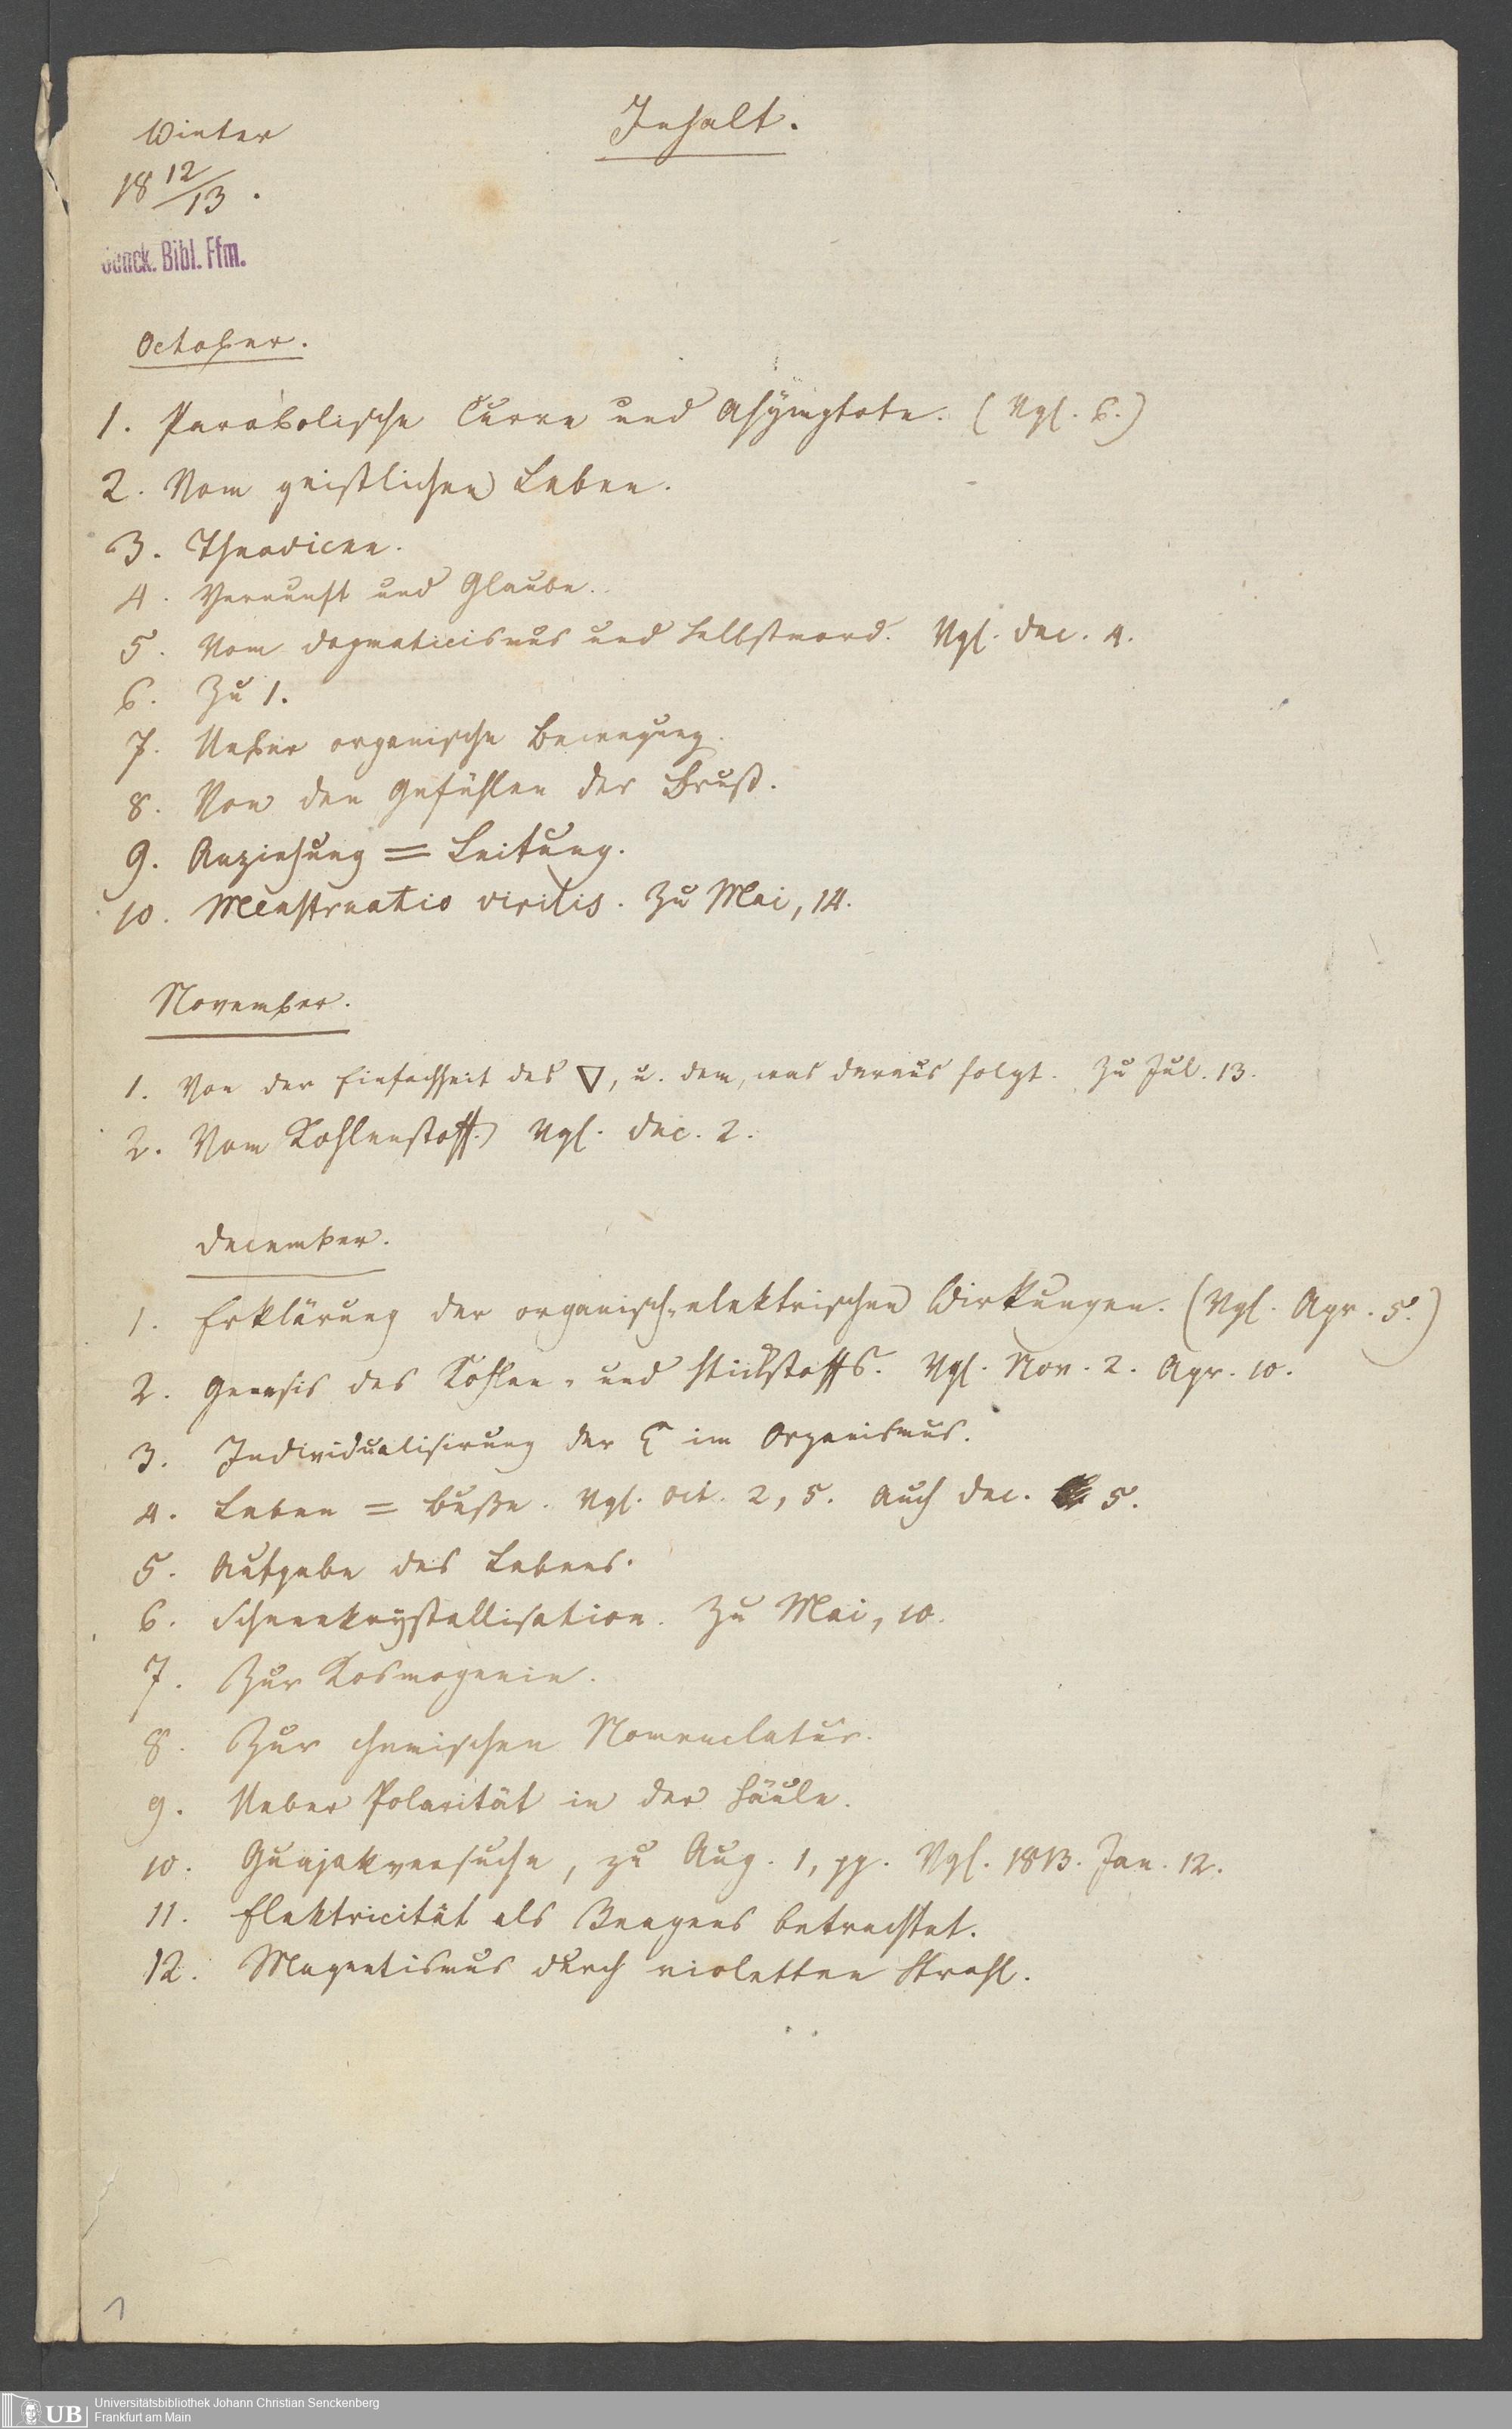 Inhalt.
Winter
18 12/13.
Senck. Bibl. Ffm.
October.
1. Parabolische Curve und Asÿmptote. (Vgl. 6.)
2. Vom geistlichen Leben.
3. Theodicee.
4. Vernunft und Glaube.
5. Vom Dogmaticismus und Selbstmord. Vgl. Dec. 4.
6. Zu 1.
7. Ueber organische Bewegung.
8. Von den Gefühlen der Brust.
9. Anziehung = Leitung.
10. Menstruatio virilis. Zu Mai, 14.
November.
1. Von der Einfachheit des ▽, u. dem, was daraus folgt. Zu Jul. 13.
2. Vom Kohlenstoff. Vgl. Dec. 2.
December.
1. Erklärung der organisch-elektrischen Wirkungen. (Vgl. Apr. 5.)
2. Genesis des Kohlen- und Stickstoffs. Vgl. Nov. 2. Apr. 10.
3. Individualisirung der im Organismus.
4. Leben = Buße. Vgl. Oct. 2, 5. Auch Dec. 5.
5. Aufgabe des Lebens.
6. Schneekrystallisation. Zu Mai, 10.
7. Zur Kosmogenie.
8. Zur chemischen Nomenclatur.
9. Ueber Polarität in der Säule.
10. Guajakversuche, zu Aug. 1, pp. Vgl. 1813. Jan. 12.
11. Elektricität als Reagens betrachtet.
12. Magnetismus durch violetten Strahl.
1
UB
Universitätsbibliothek Johann Christian Senckenberg
Frankfurt am Main